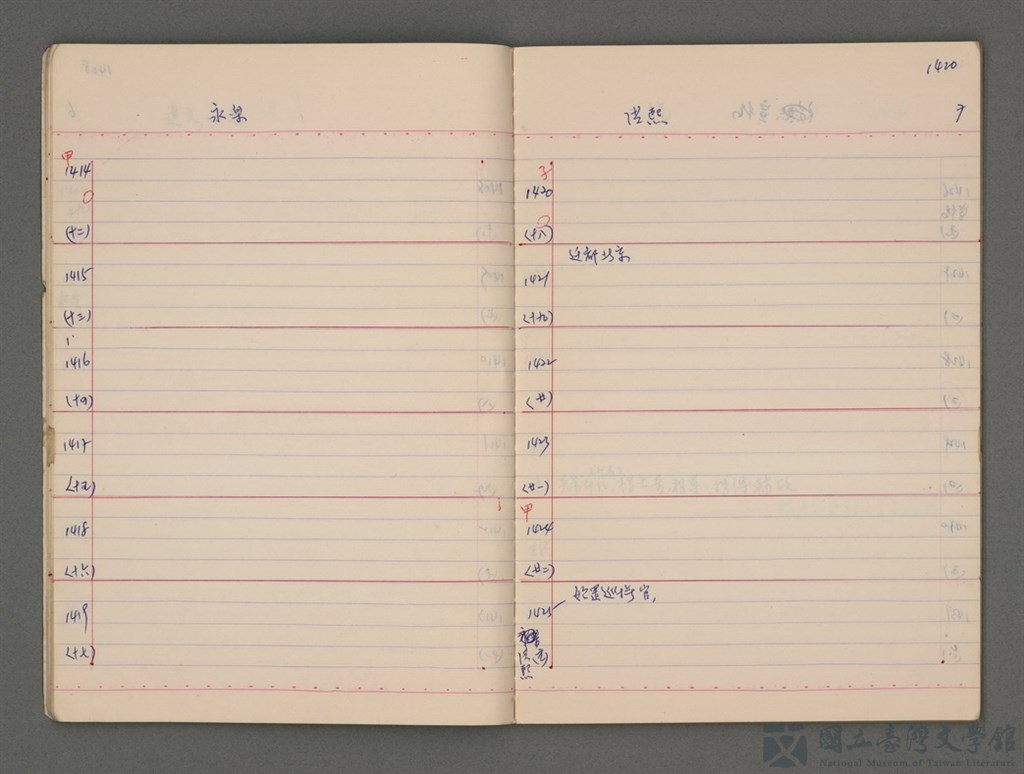 永楽
甲
1414
(十二)
1415
(十三)
1416
(十四)
1417
(十五)
1418
(十六)
1419
(十七)
1420
洪熙
7
子
1420
(十八)
迁都北京
1421
(十九)
1422
(廿)
1423
(廿一)
甲
1424
(廿二)
始置巡按官,
1425
洪熙
(元)
國立臺灣文學館
National Museum of Taiwan Literature